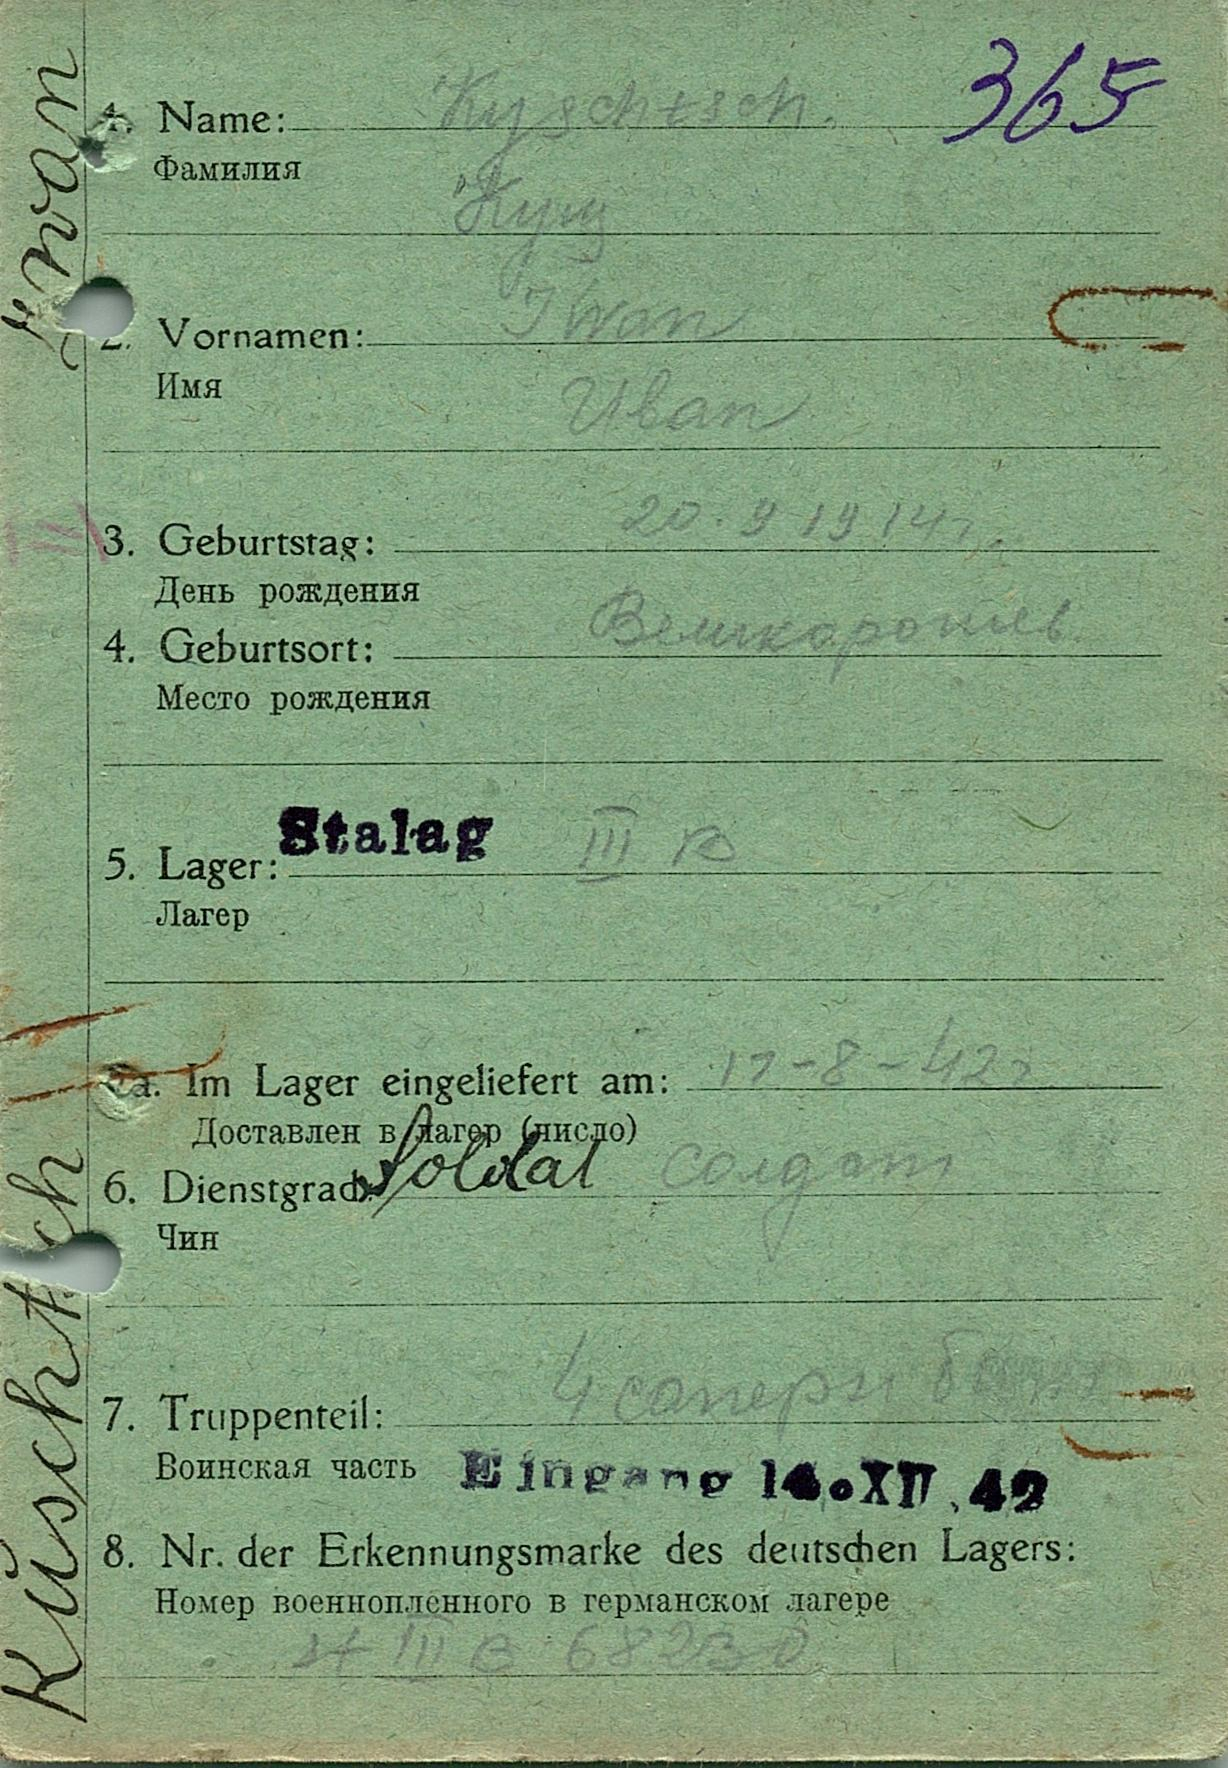 365
1. Name: Kyschtsch.
Фамилия
Кущ
2. Vornamen: Iwan
Имя
Иван
3. Geburtstag: 20.9 1914 г.
День рождения
4. Geburtsort:
Место рождения
5. Lager: Stalag III B
Лагер
5a. Im Lager eingeliefert am: 17-8-42 г
Доставлен в лагер (число)
6. Dienstgrad: Soldat солдат
Чин
7. Truppenteil: 4 саперн
Воинская часть
Eingang 14.XII.42
8. Nr. der Erkennungsmarke des deutschen Lagers:
Номер военнопленного в германском лагере
St III B 68230
Küschtsch Iwan